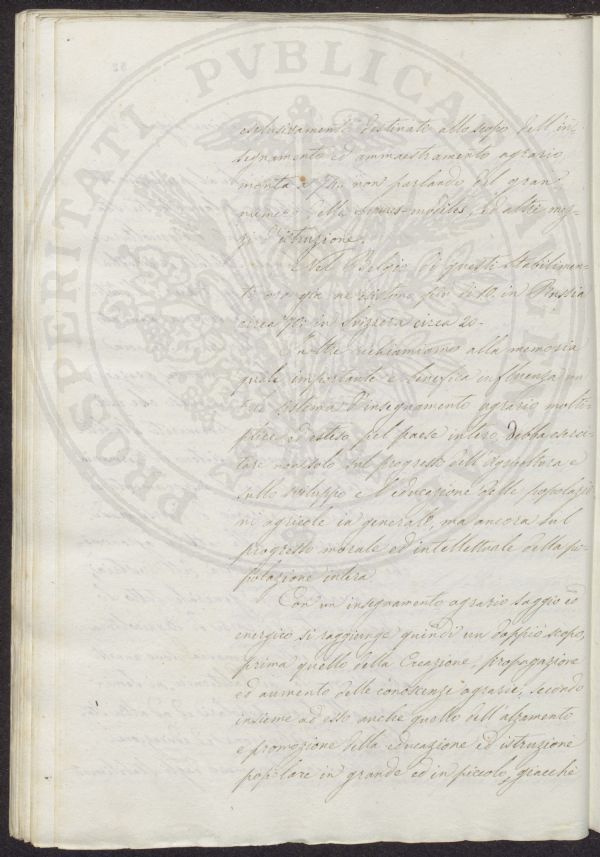 PROSPERITATI PVBLICAE
esclusivamente destinati allo scopo dell' in-
segnamento ed ammaestramento agrario
monta a 74, non parlando del gran
numero delle Fermes-modèles, ed altri mez-
zi d'istruzione.
Nel Belgio di questi stabilimen-
ti ora già ne esistono più di 10. in Prussia
circa 70; in Svizzera circa 20-
Inoltre richiamiamo alla memoria
quale importante e benefica influenza un
tal sistema d'insegnamento agrario molti-
plice ed esteso pel paese intero, debba eserci-
tare non solo sul progresso dell'Agricoltura e
sullo sviluppo e l'educazione delle popolazio-
ni agricole in generale, ma ancora sul
progresso morale ed intellettuale della po-
polazione intera
Con un insegnamento agrario saggio ed
energico si raggiunge quindi un doppio scopo,
prima quello della Creazione, propagazione
ed aumento delle conoscenze agrarie, secondo
insieme ad esso anche quello dell'alzamento
e promozione della educazione ed istruzione
popolare in grande ed in piccolo, giacchè